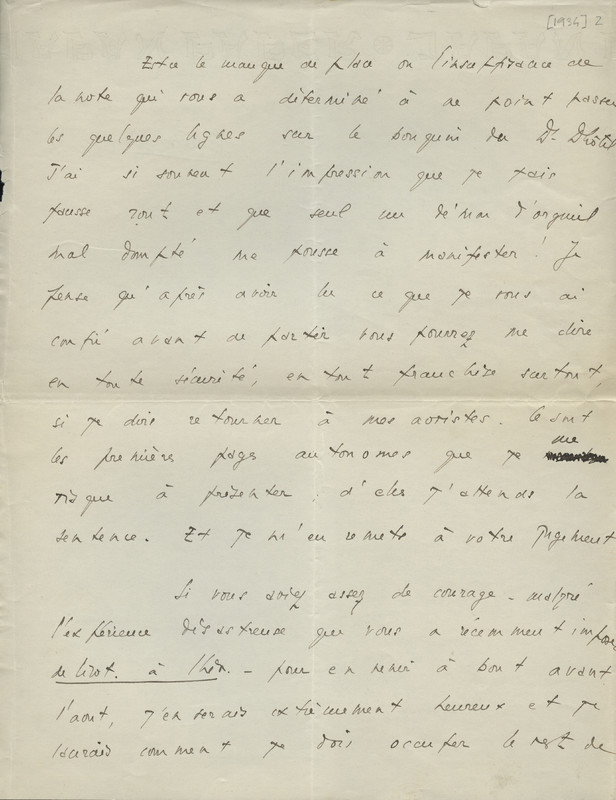 [1934] 2
Est-ce le manque de place ou l'insuffisance de
la note qui vous a déterminé à ne point passer
les quelques lignes sur le bouquin du Dr Dhôtel
J'ai si souvent l'impression que je fais
fausse rout et que seul un démon d'orgueil
mal dompté me pousse à manifester! Je
pense qu'après avoir lu ce que je vous ai
confié avant de partir vous pourrez me dire
en toute sécurité, en tout franchise surtout,
si je dois retourner à mes aoristes. Ce sont
les premières pages autonomes que je me
risque à présenter; d'elles j'attends la
sentence. Et je m'en remets à votre jugement
Si vous aviez assez de courage - malgré
l'expérience désastreuse que vous a récemment
- pour en venir à bout avant
l'aout, j'en serais extrêmement heureux et je
saurais comment je dois occuper le rest de